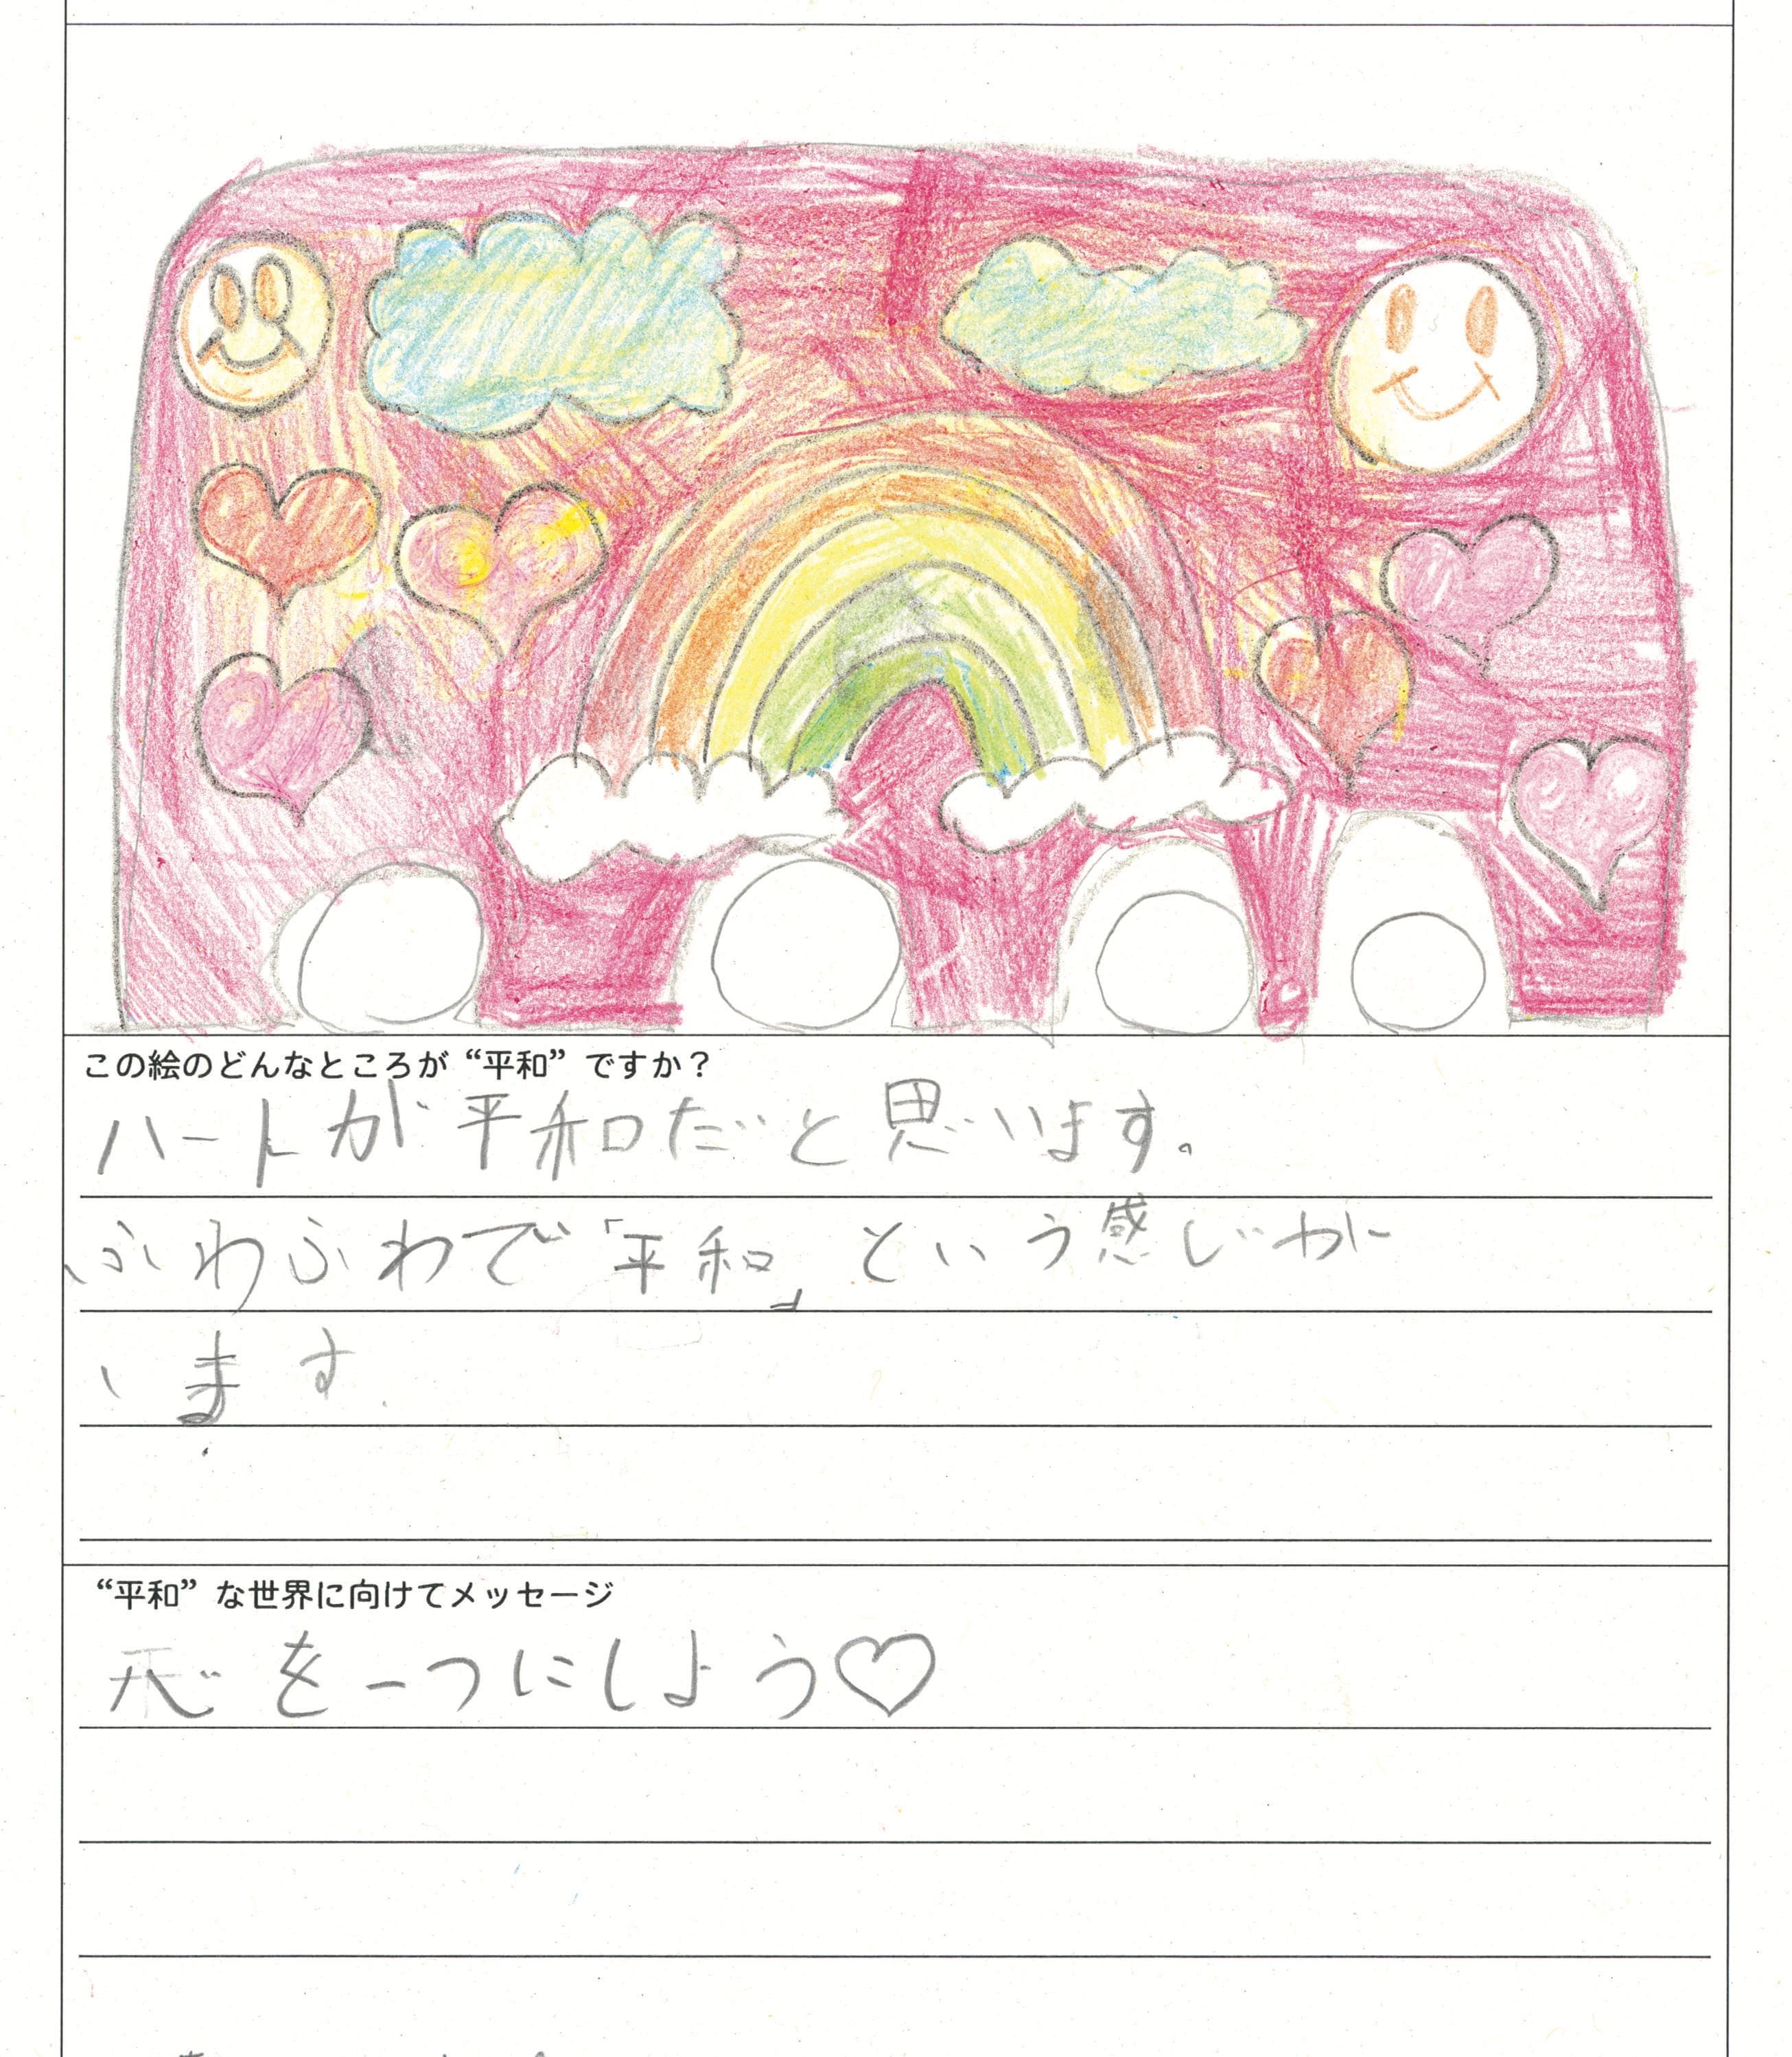 この絵のどんなところが“平和”ですか？
ハートが平和だと思います。
ふわふわで「平和」という感じが
します。
“平和”な世界に向けてメッセージ
心を一つにしよう♡